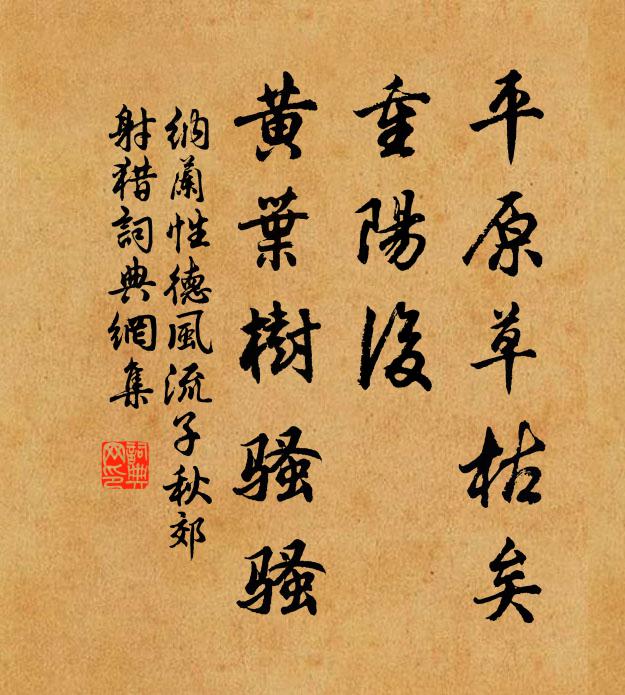 平原草枯矣
重陽後
黃葉樹騷騷
納蘭性德風流子秋郊
射猎詞典網集
詞典
网印